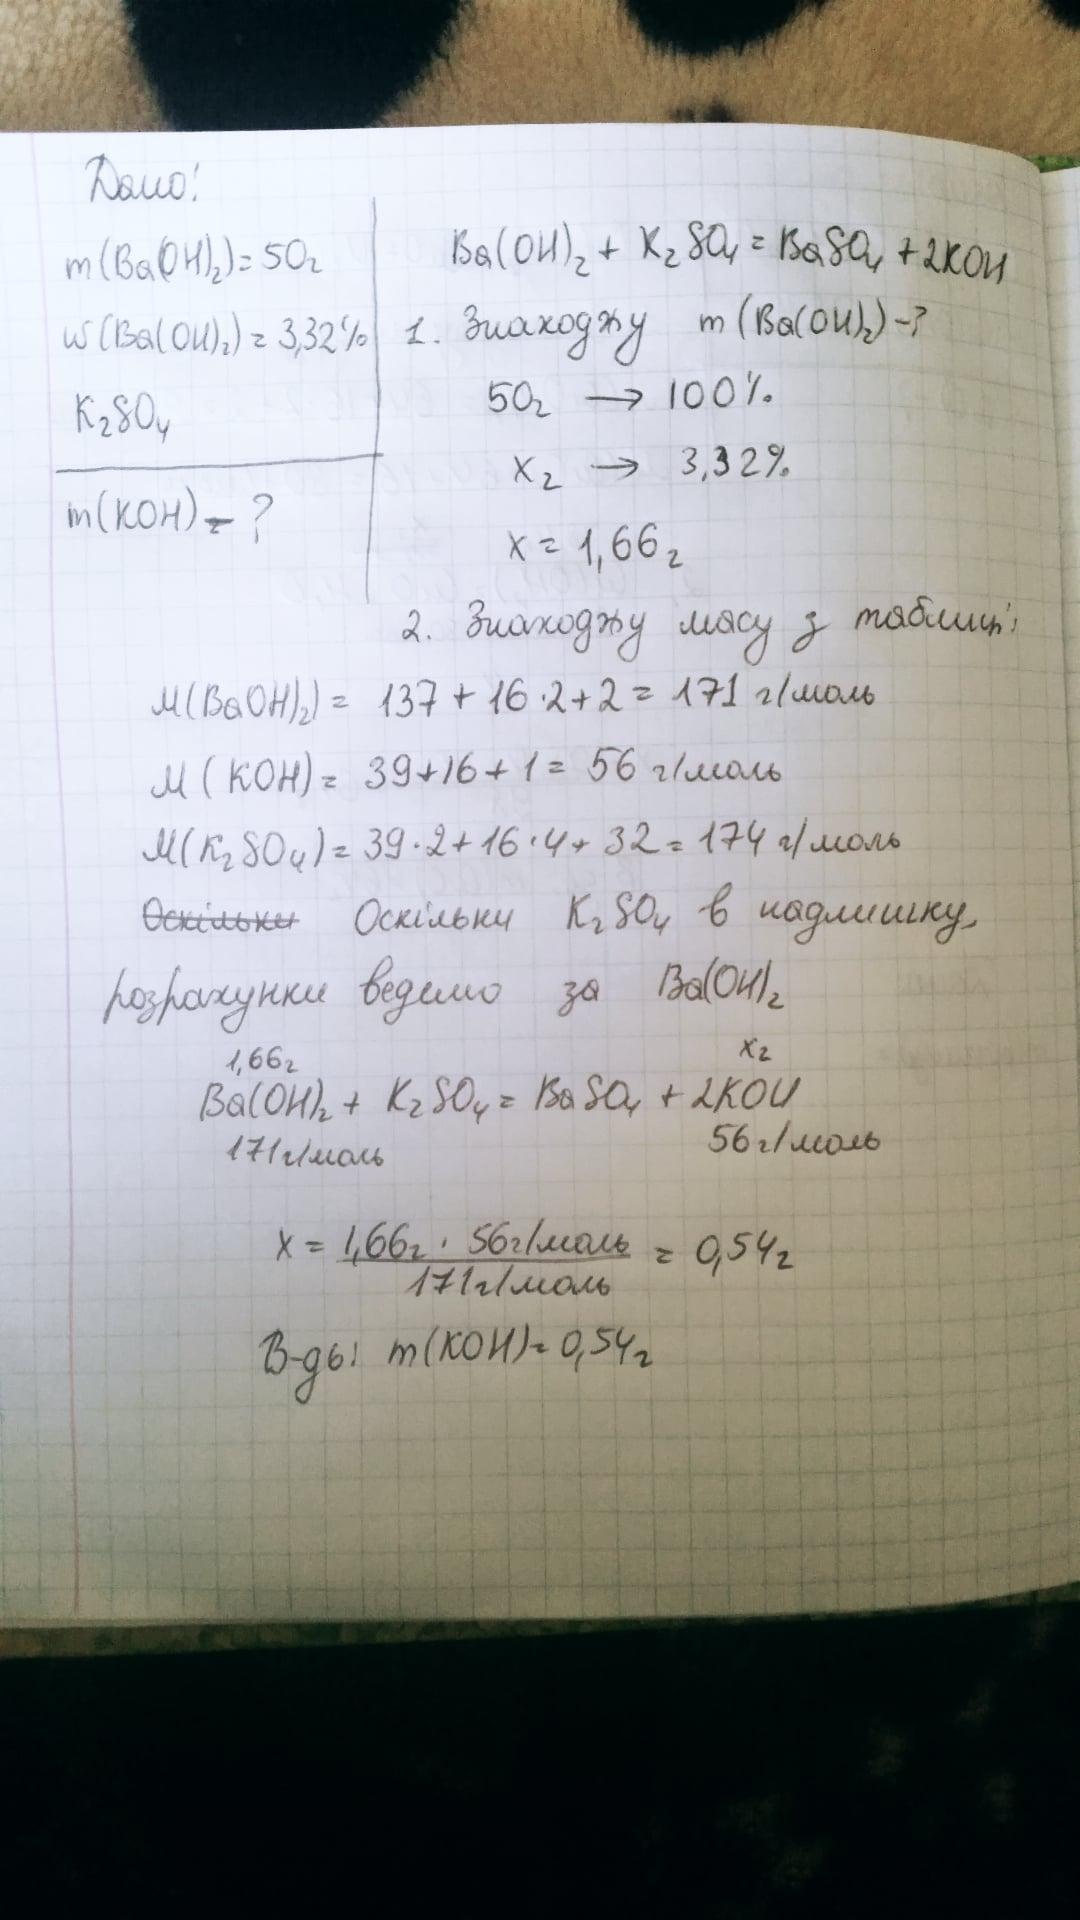 Дано:
m(Ba(OH)₂)=50г
w(Ba(OH)₂)=3,32%
K₂SO₄
m(KOH)-?
Ba(OH)₂ + K₂SO₄ = BaSO₄ + 2KOH
1. Знаходжу m(Ba(OH)₂)-?
50г → 100%
xг → 3,32%
x = 1,66г
2. Знаходжу масу з таблиці:
M(Ba(OH)₂) = 137 + 16·2+2 = 171 г/моль
M(KOH) = 39+16+1 = 56 г/моль
M(K₂SO₄) = 39·2+16·4+32 = 174 г/моль
Оскільки Оскільки K₂SO₄ в надлишку,
розрахунки ведемо за Ba(OH)₂
1,66г xг
Ba(OH)₂ + K₂SO₄ = BaSO₄ + 2KOH
171г/моль 56г/моль
x = 1,66г · 56г/моль / 171г/моль = 0,54г
В-дь: m(KOH)=0,54г